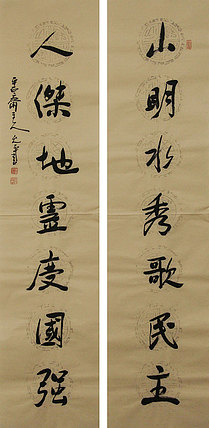 山明水秀歌民主
人傑地靈慶國强